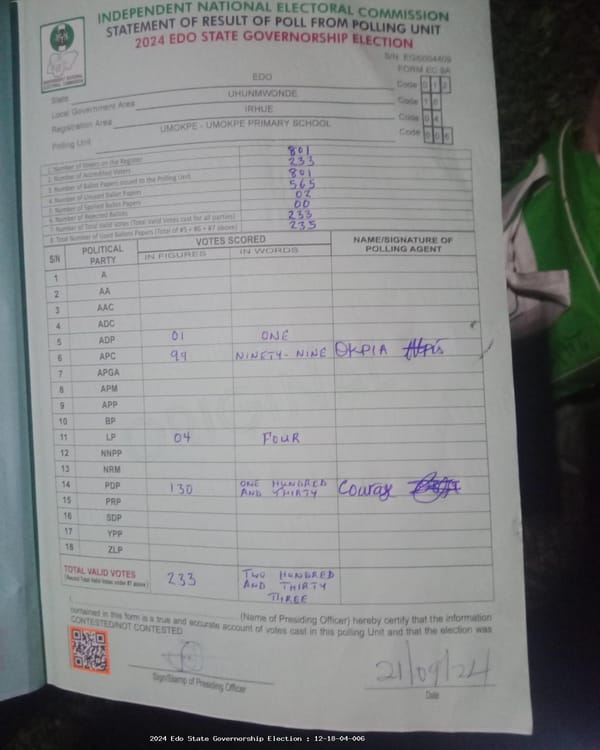 INDEPENDENT NATIONAL ELECTORAL COMMISSION
STATEMENT OF RESULT OF POLL FROM POLLING UNIT
2024 EDO STATE GOVERNORSHIP ELECTION
FORM EC 8A
State EDO Code 012
Local Government Area UHUNMWONDE Code 18
Registration Area IRHUE Code 04
Polling Unit UMOKPE - UMOKPE PRIMARY SCHOOL Code 006
1. Number of Voters on the Register 801
2. Number of Accredited Voters 233
3. Number of Ballot Papers Issued to the Polling Unit 801
4. Number of Unused Ballot Papers 565
5. Number of Spoiled Ballot Papers 02
6. Number of Rejected Ballots 00
7. Number of Total Valid Votes (Total Valid Votes cast for all parties) 233
8. Total Number of Used Ballots Papers (Total of #5 + #6 + #7 above) 235
S/N POLITICAL PARTY VOTES SCORED NAME/SIGNATURE OF POLLING AGENT
IN FIGURES IN WORDS
1 A
2 AA
3 AAC
4 ADC
5 ADP 01 ONE
6 APC 99 NINETY-NINE OKPIA
7 APGA
8 APM
9 APP
10 BP
11 LP 04 FOUR
12 NNPP
13 NRM
14 PDP 130 ONE HUNDRED AND THIRTY
15 PRP
16 SDP
17 YPP
18 ZLP
TOTAL VALID VOTES 233 TWO HUNDRED AND THIRTY THREE
(Name of Presiding Officer) hereby certify that the information
contained in this form is a true and accurate account of votes cast in this polling Unit and that the election was
CONTESTED/NOT CONTESTED
21/09/24
Sign/Stamp of Presiding Officer Date
2024 Edo State Governorship Election : 12-18-04-006